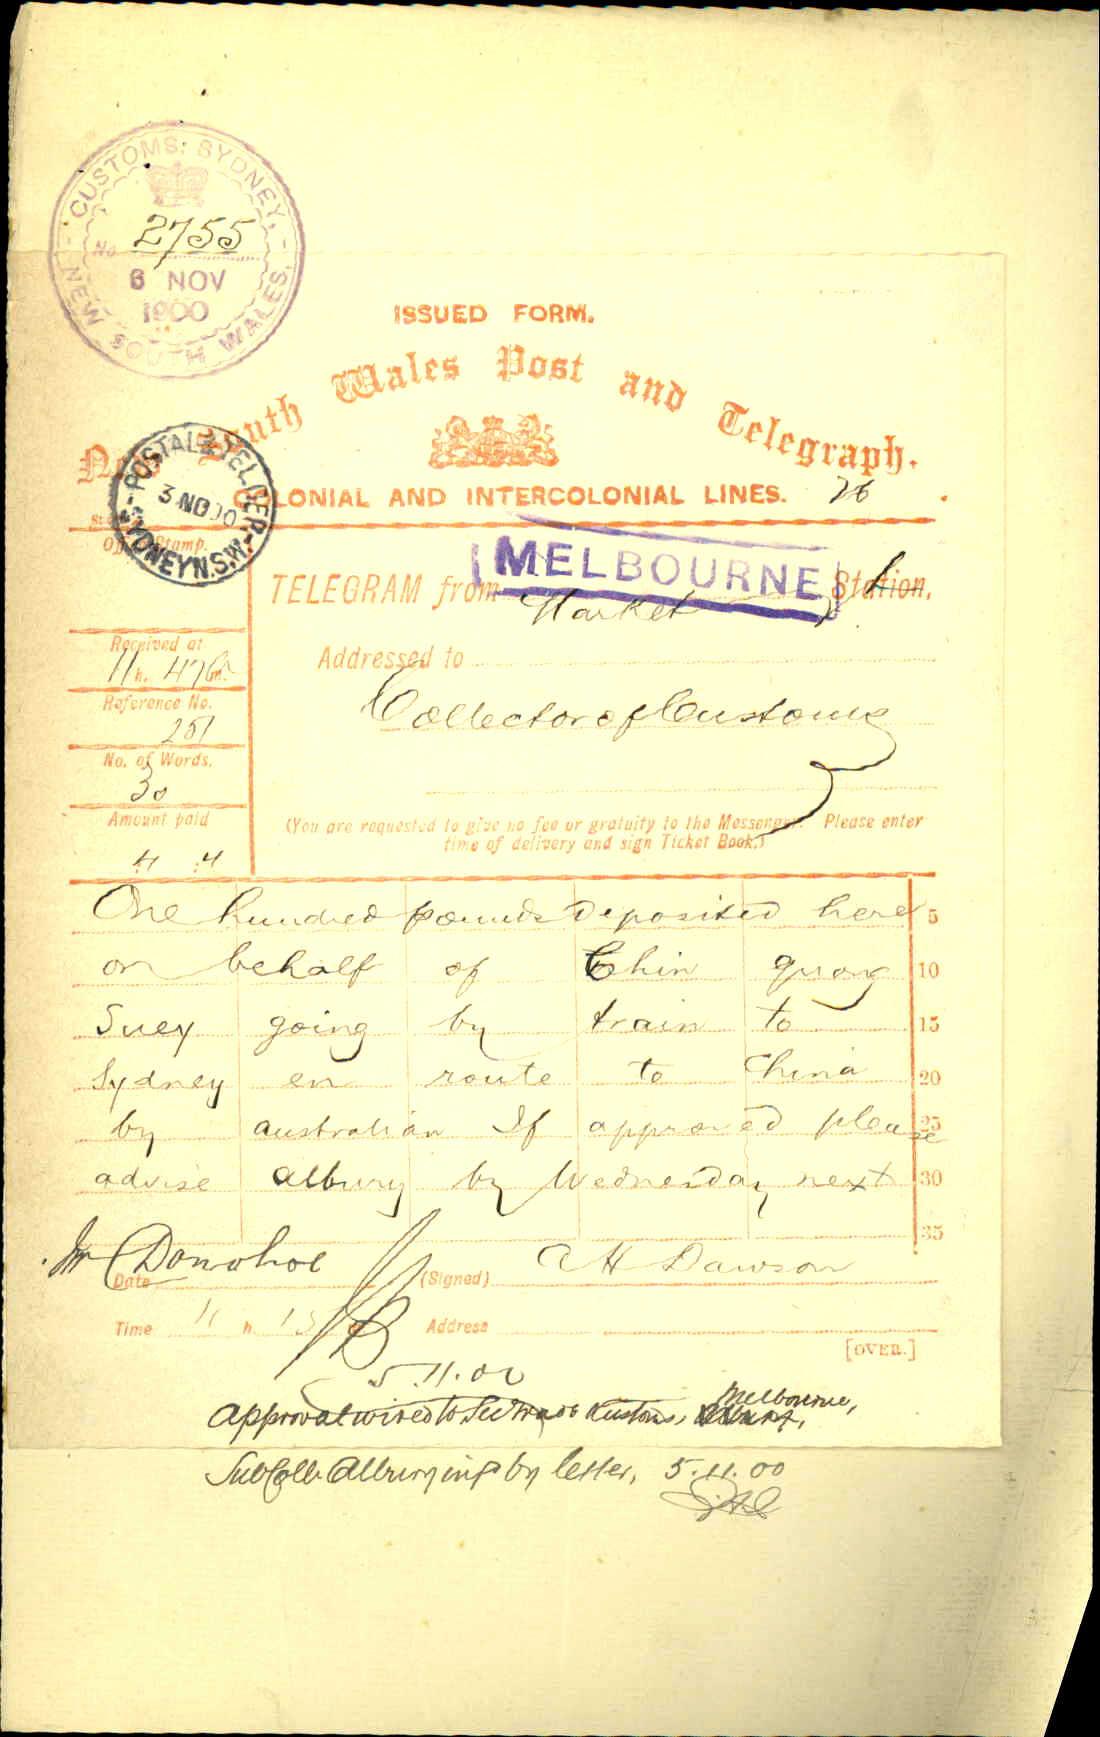 CUSTOMS: SYDNEY,
No 2755
6 NOV
1900
NEW SOUTH WALES.
ISSUED FORM.
New South Wales Post and Telegraph.
COLONIAL AND INTERCOLONIAL LINES. 26
POSTAL & TEL. DEP.
3 NO 00
SYDNEY N.S.W.
Office Stamp.
TELEGRAM from MELBOURNE Station,
Market
Received at
11 h. 47 m.
Addressed to
Collector of Customs
Reference No.
251
No. of Words.
30
Amount paid
(You are requested to give no fee or gratuity to the Messenger. Please enter
time of delivery and sign Ticket Book.)
One hundred pounds deposited here 5
on behalf of Chin quong 10
Suey going by train to 15
Sydney en route to China 20
by australian If approved please 25
advise albury by Wednesday next 30
35
Mr Donohoe
Date (Signed) A H Dawson
Time 11 h. 15 Address
[OVER.]
5.11.00
Approval wired to Sec Trade Kustoms, Melbourne,
Sub Coll. Albury inf by letter, 5.11.00